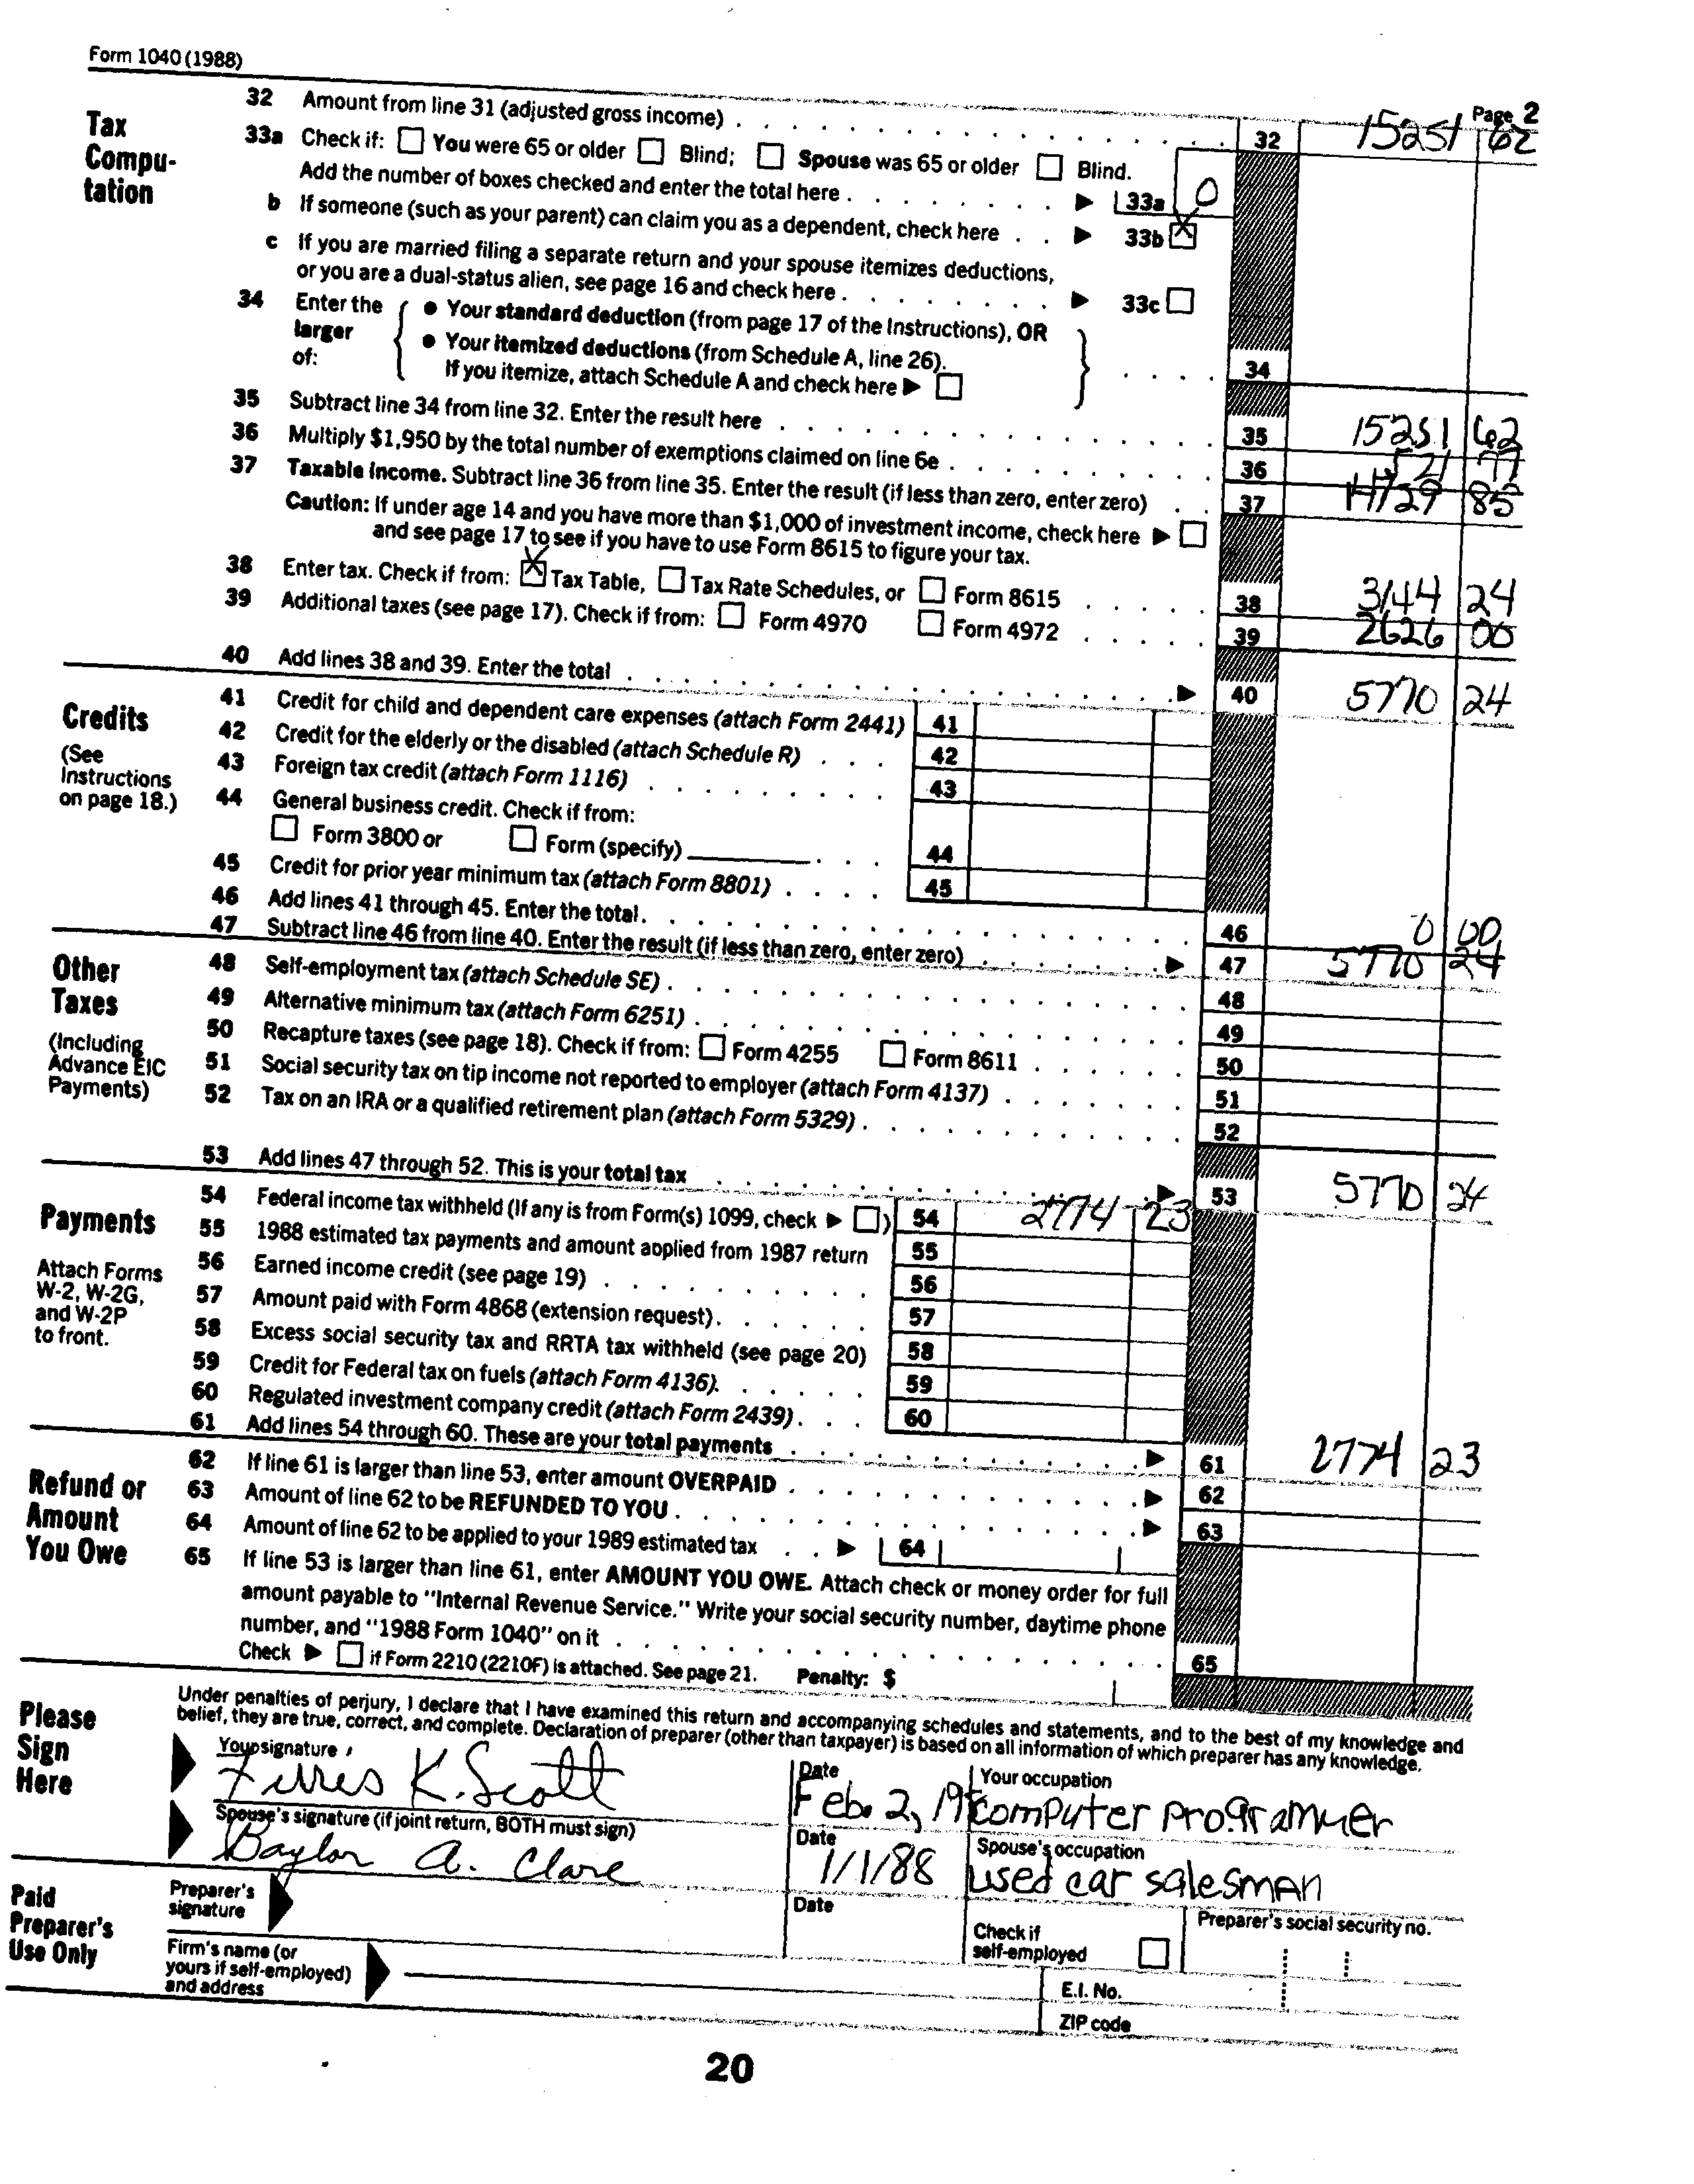 Form 1040 (1988)
Page 2
Tax Compu-tation
32 Amount from line 31 (adjusted gross income) . . . 32 15251 62
33a Check if: ☐ You were 65 or older ☐ Blind; ☐ Spouse was 65 or older ☐ Blind.
Add the number of boxes checked and enter the total here . . . ▶ 33a 0
b If someone (such as your parent) can claim you as a dependent, check here . . ▶ 33b ☒
c If you are married filing a separate return and your spouse itemizes deductions,
or you are a dual-status alien, see page 16 and check here . . . ▶ 33c ☐
34 Enter the larger of: { ● Your standard deduction (from page 17 of the Instructions), OR
● Your itemized deductions (from Schedule A, line 26).
If you itemize, attach Schedule A and check here ▶ ☐ } . . . . 34
35 Subtract line 34 from line 32. Enter the result here . . . 35 15251 62
36 Multiply $1,950 by the total number of exemptions claimed on line 6e . . . 36 521 77
37 Taxable income. Subtract line 36 from line 35. Enter the result (if less than zero, enter zero) . . 37 14729 85
Caution: If under age 14 and you have more than $1,000 of investment income, check here ▶ ☐
and see page 17 to see if you have to use Form 8615 to figure your tax.
38 Enter tax. Check if from: ☒ Tax Table, ☐ Tax Rate Schedules, or ☐ Form 8615 . . . 38 3144 24
39 Additional taxes (see page 17). Check if from: ☐ Form 4970 ☐ Form 4972 . . . 39 2626 00
40 Add lines 38 and 39. Enter the total . . . ▶ 40 5770 24
Credits
(See Instructions on page 18.)
41 Credit for child and dependent care expenses (attach Form 2441) 41
42 Credit for the elderly or the disabled (attach Schedule R) . . . 42
43 Foreign tax credit (attach Form 1116) . . . 43
44 General business credit. Check if from:
☐ Form 3800 or ☐ Form (specify) . . . 44
45 Credit for prior year minimum tax (attach Form 8801) . . . . 45
46 Add lines 41 through 45. Enter the total . . . 46 0 00
47 Subtract line 46 from line 40. Enter the result (if less than zero, enter zero) . . . ▶ 47 5770 24
Other Taxes
(Including Advance EIC Payments)
48 Self-employment tax (attach Schedule SE) . . . 48
49 Alternative minimum tax (attach Form 6251) . . . 49
50 Recapture taxes (see page 18). Check if from: ☐ Form 4255 ☐ Form 8611 . . . 50
51 Social security tax on tip income not reported to employer (attach Form 4137) . . . 51
52 Tax on an IRA or a qualified retirement plan (attach Form 5329) . . . 52
53 Add lines 47 through 52. This is your total tax . . . ▶ 53 5770 24
Payments
Attach Forms W-2, W-2G, and W-2P to front.
54 Federal income tax withheld (If any is from Form(s) 1099, check ▶ ☐) 54 2774 23
55 1988 estimated tax payments and amount applied from 1987 return 55
56 Earned income credit (see page 19) . . . 56
57 Amount paid with Form 4868 (extension request) . . . 57
58 Excess social security tax and RRTA tax withheld (see page 20) 58
59 Credit for Federal tax on fuels (attach Form 4136). . . . 59
60 Regulated investment company credit (attach Form 2439) . . . 60
61 Add lines 54 through 60. These are your total payments . . . ▶ 61 2774 23
Refund or Amount You Owe
62 If line 61 is larger than line 53, enter amount OVERPAID . . . ▶ 62
63 Amount of line 62 to be REFUNDED TO YOU . . . ▶ 63
64 Amount of line 62 to be applied to your 1989 estimated tax . . ▶ 64
65 If line 53 is larger than line 61, enter AMOUNT YOU OWE. Attach check or money order for full
amount payable to "Internal Revenue Service." Write your social security number, daytime phone
number, and "1988 Form 1040" on it . . . 65
Check ▶ ☐ if Form 2210 (2210F) is attached. See page 21. Penalty: $
Please Sign Here
Under penalties of perjury, I declare that I have examined this return and accompanying schedules and statements, and to the best of my knowledge and
belief, they are true, correct, and complete. Declaration of preparer (other than taxpayer) is based on all information of which preparer has any knowledge.
Your signature Date Your occupation
K. Scott Feb. 2, computer programmer
Spouse's signature (if joint return, BOTH must sign) Date Spouse's occupation
Baylor A. Clare 1/1/88 used car salesman
Paid Preparer's Use Only
Preparer's signature Date Check if self-employed ☐ Preparer's social security no.
Firm's name (or yours if self-employed) and address
E.I. No.
ZIP code
20